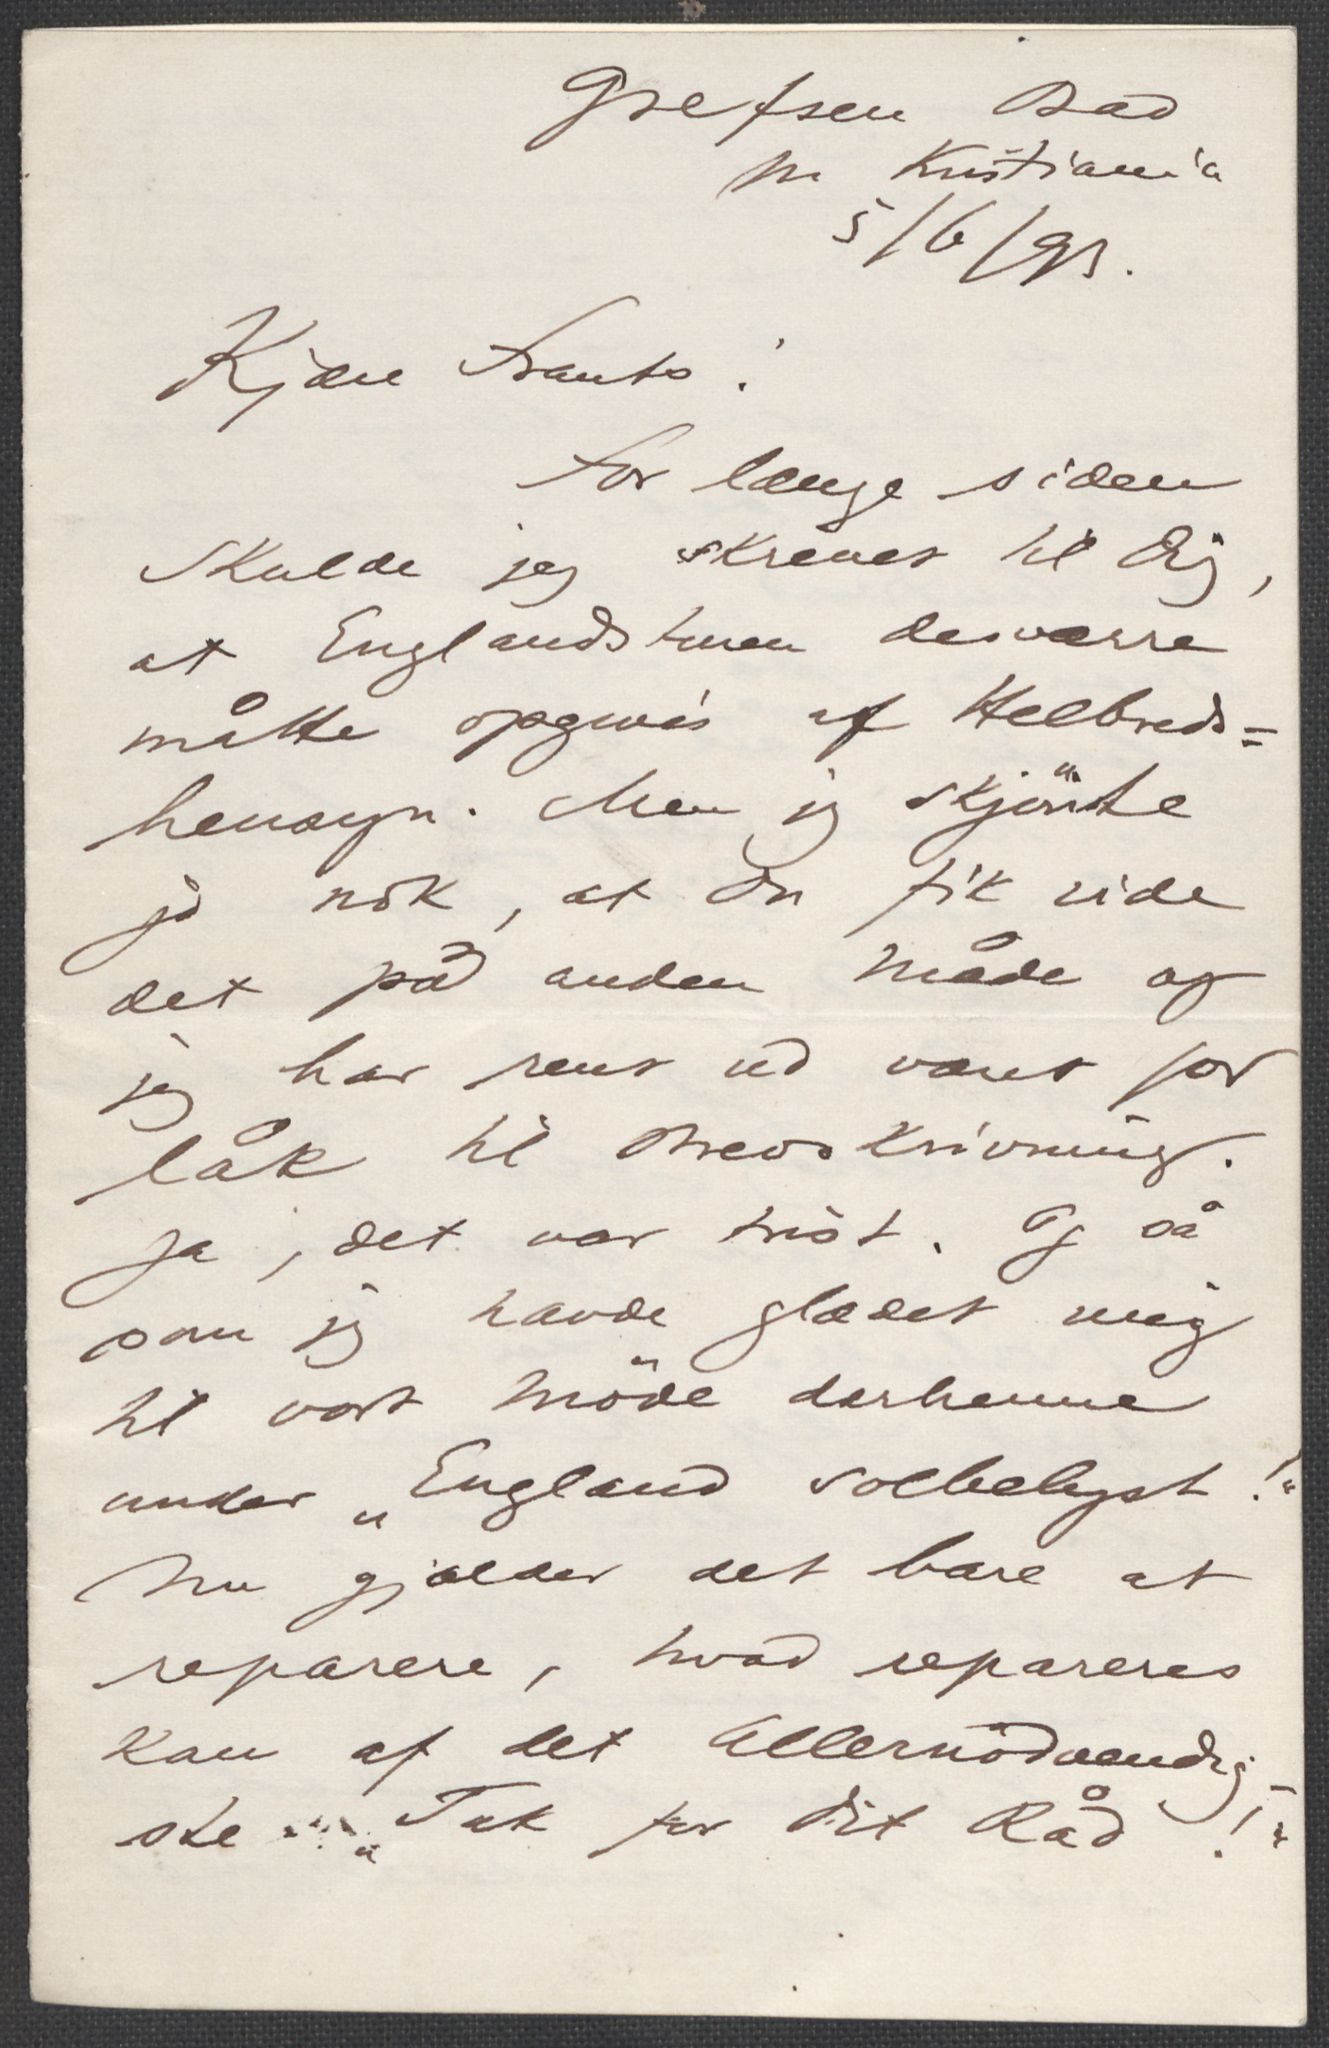 Grefsen Bad
pr Kristiania
5/6/93.
Kjære Frants!
For længe siden
skulde jeg skrevet til Dig,
at Englandsturen desværre
måtte opgives af Helbreds=
hensyn. Men jeg skjönte
jo nok, at Du fik vide
det på anden måde og
jeg har rent ud været for
låk til Brevskrivning.
Ja, det var trist. Og så
som jeg havde glædet mig
til vort Möde derhenne
under „England solbelyst!“
Nu gjælder det bare at
reparere, hvad repareres
kan af det Allernödvendig-
ste „Tak for dit Råd!“